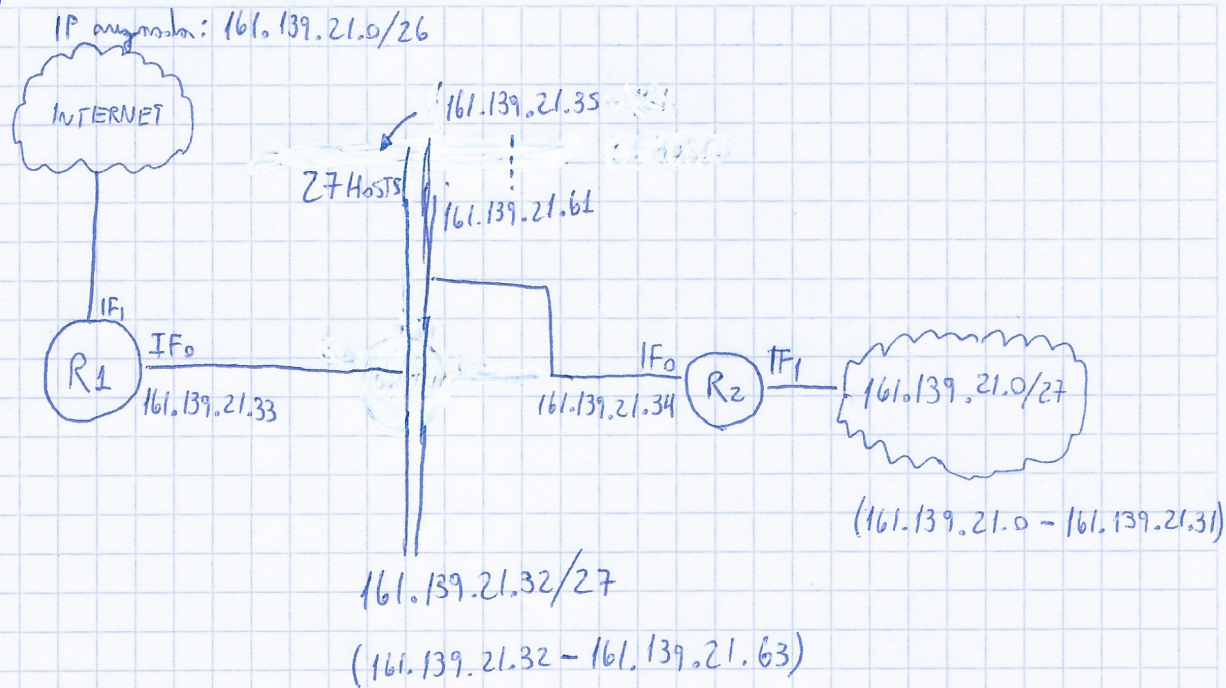 IP asignada: 161.139.21.0/26
INTERNET
161.139.21.35
27 HOSTS
161.139.21.61
IF1
R1
IF0
161.139.21.33
IF0
161.139.21.34
R2
IF1
161.139.21.0/27
(161.139.21.0 - 161.139.21.31)
161.139.21.32/27
(161.139.21.32 - 161.139.21.63)